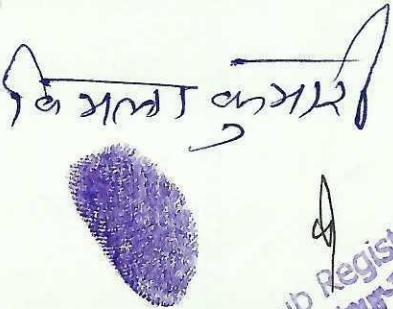 विमला कुमारी
Sub Regist